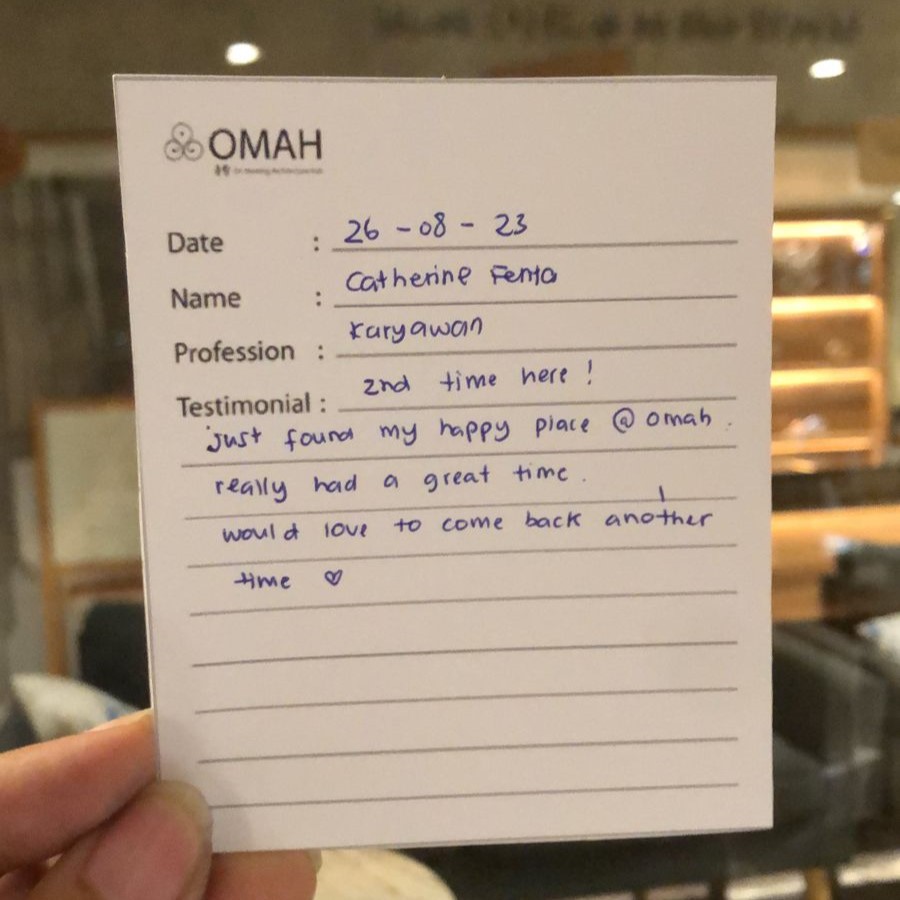 OMAH
Date : 26 - 08 - 23
Name : Catherine Fenta
Profession : Karyawan
Testimonial : 2nd time here !
just found my happy place @ omah .
really had a great time .
would love to come back another
time ♡